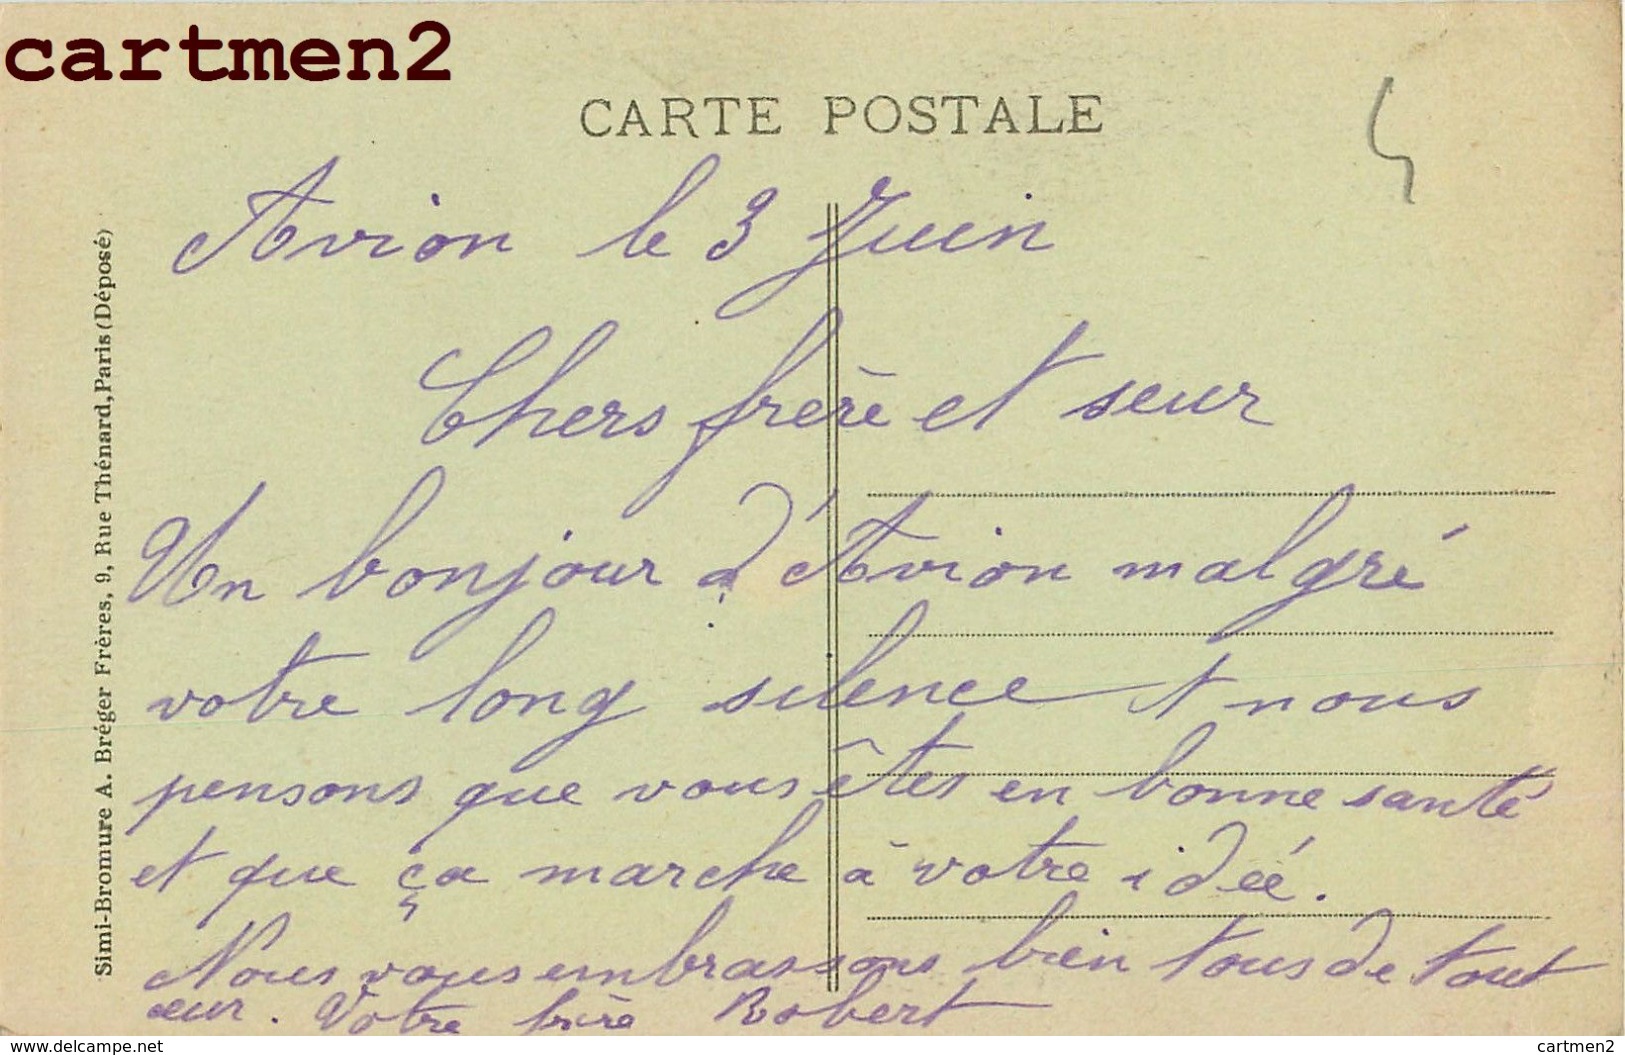 cartmen2
CARTE POSTALE
Avion le 3 Juin
Chers frère et seur
Un bonjour d'Avion malgré
votre long silence et nous
pensons que vous êtes en bonne santé
et que ça marche à votre idée.
Nous vous embrassons bien tous de tout
cœur. Votre frère Robert
Simi-Bromure A. Bréger Frères, 9, Rue Thénard, Paris (Déposé)
www.delcampe.net
cartmen2